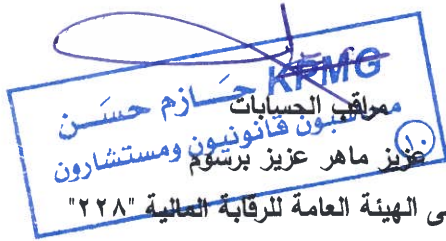 KPMG حازم حسن
مراقب الحسابات
محاسبون قانونيون ومستشارون
(١٠)
عزيز ماهر عزيز برسوم
ى الهيئة العامة للرقابة المالية "٢٢٨"